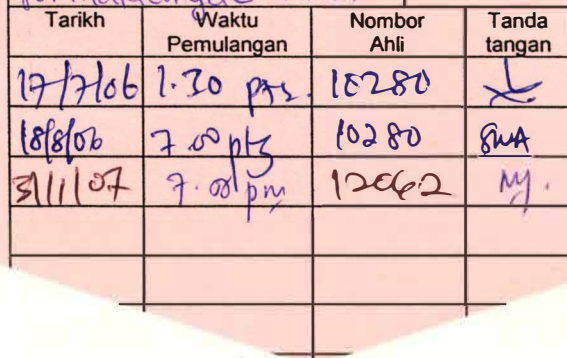 Tarikh Waktu Pemulangan Nombor Ahli Tanda tangan
17/7/06 1.30 ptg. 10280
18/8/06 7.00 ptg 10280
31/1/07 7.00 pm 12062